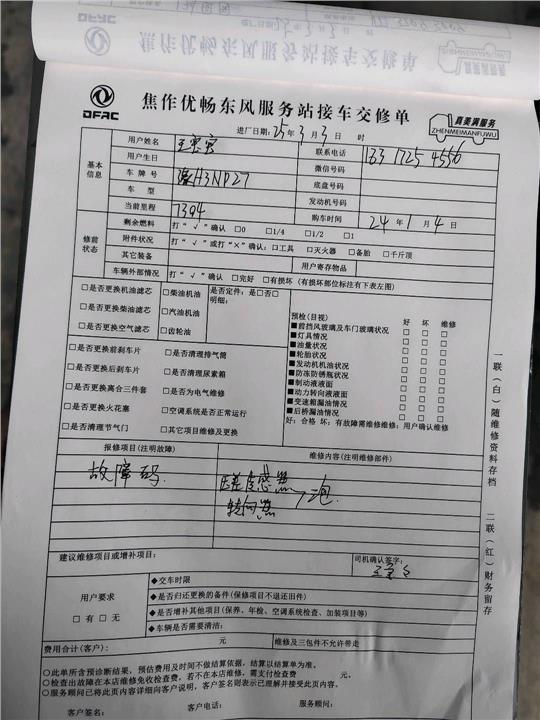 DFAC
焦作优畅东风服务站接车交修单
真美满服务
ZHENMEIMANFUWU
进厂日期: 25年3月3日 时
基本信息
用户姓名
联系电话
用户生日
微信号码
车牌号 豫H3NP27
底盘号码
车型
发动机号码
当前里程 7394
购车时间 24年1月4日
修前状态
剩余燃料 打“√”确认 □0 □1/4 □1/2 □1
附件状况 打“√”或打“×”确认: □工具 □灭火器 □备胎 □千斤顶
其它装备
用户寄存物品
车辆外部情况 打“√”确认 □完好 □有损坏 (有损坏部位标注有下表左图)
□是否更换机油滤芯 □柴油机油 是否定件: 是□否□
□是否更换柴油滤芯 □汽油机油 明细:
□是否更换空气滤芯 □齿轮油
□是否更换前刹车片 □是否清理排气筒
□是否更换后刹车片 □是否清理尿素箱
□是否更换离合三件套 □是否为电气维修
□是否更换火花塞 □空调系统是否正常运行
□是否清理节气门 □其它项目维修及更换
预检(目视) 好 坏 维修
■前挡风玻璃及车门玻璃状况 □ □ □
■灯具情况 □ □ □
■油量状况 □ □ □
■轮胎状况 □ □ □
■发动机机油状况 □ □ □
■防冻防锈瓶状况 □ □ □
■制动液液面 □ □ □
■动力转向液液面 □ □ □
■变速箱漏油情况 □ □ □
■后桥漏油情况 □ □ □
好: 合格 坏: 有故障需维修维修: 用户确认维修
报修项目(注明故障)
维修内容(注明维修部件)
故障码
建议维修项目或增补项目:
司机确认签字:
用户要求
□有 □无
◆交车时限
◆是否归还更换的备件(保修项目不退还旧件)
◆是否增补其他项目(保养、年检、空调系统检查、加装项目等)
◆车辆是否需要清洁:
费用合计(客户): 元
维修及三包件不允许带走
○此单所含预诊断结果, 预估费用及时间不做结算依据, 结算以结算单为准。
○检查出故障在本店维修免收检查费, 若不在本店维修, 需支付检查费 元。
○服务顾问已将此页内容详细向客户说明, 客户签名则表示已理解并接受此页内容。
客户签名: 客户电话: 服务顾问:
一联(白)随维修资料存档
二联(红)财务留存